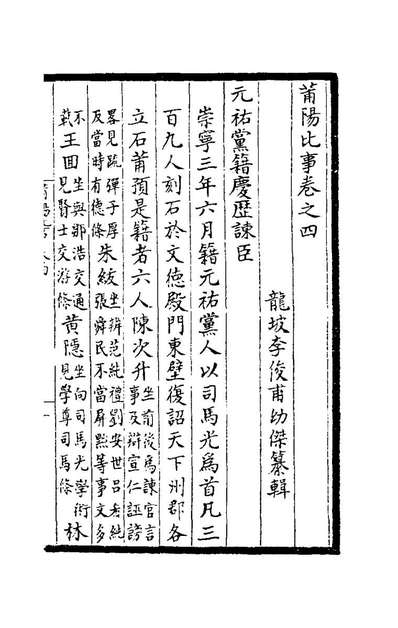 莆陽比事卷之四
龍坡李俊甫幼傑纂輯
元祐黨籍慶歴諫臣
崇寧三年六月籍元祐黨人以司馬光爲首凡三
百九人刻石於文德殿門東壁復詔天下州郡各
立石莆預是籍者六人陳次升坐前後爲諫官言事及辯宣仁誣謗
畧見疏彈子厚及當時有德條朱紱坐辨范純禮劉安世吕希純張舜民不當屏黜等事文多
不載王回坐與鄒浩交通見賢士交游條黃隱坐向司馬光學術見學尊司馬條林